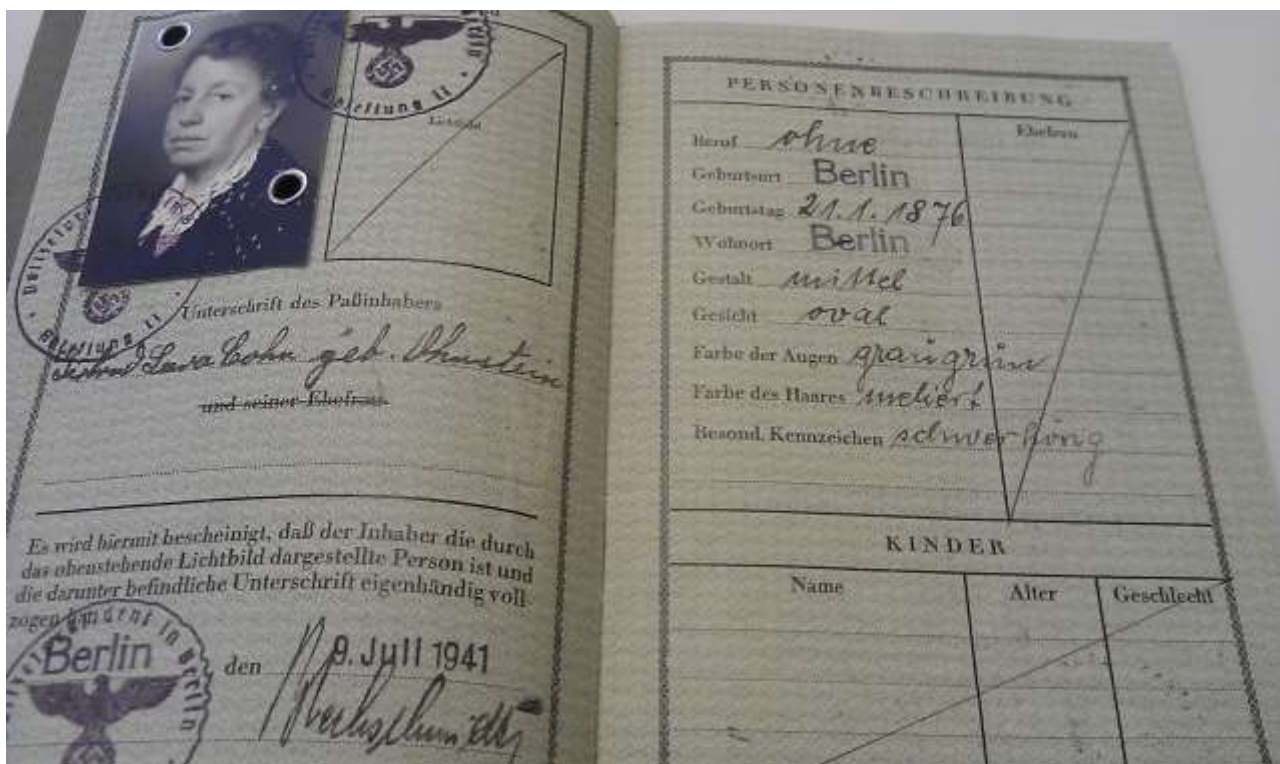 Abteilung II
Lichtbild
Abteilung II
Unterschrift des Paßinhabers
Sara Cohn geb. Ohnstein
und seiner Ehefrau
Es wird hiermit bescheinigt, daß der Inhaber die durch
das obenstehende Lichtbild dargestellte Person ist und
die darunter befindliche Unterschrift eigenhändig voll-
zogen hat
Berlin den 9. Juli 1941
in Berlin
PERSONENBESCHREIBUNG
Ehefrau
Beruf ohne
Geburtsort Berlin
Geburtstag 21.1.1876
Wohnort Berlin
Gestalt mittel
Gesicht oval
Farbe der Augen graugrün
Farbe des Haares meliert
Besond. Kennzeichen schwerhörig
KINDER
Name Alter Geschlecht